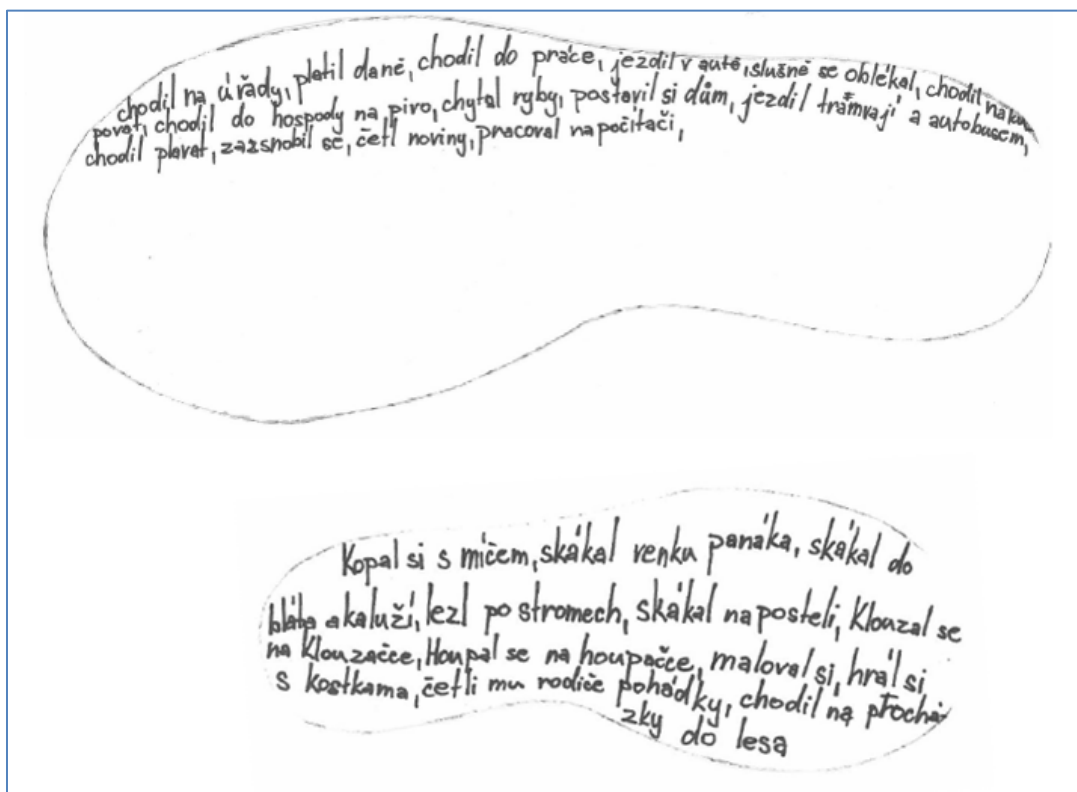 chodil na úřady, platil daně, chodil do práce, jezdil v autě, slušně se oblékal, chodil naku
povat, chodil do hospody na pivo, chytal ryby, postavil si dům, jezdil tramvají a autobusem,
chodil plavat, zazsnobil se, četl noviny, pracoval na počítači,
Kopal si s míčem, skákal venku panáka, skákal do
bláta a kaluží, lezl po stromech, skákal na posteli, Klouzal se
na Klouzačce, Houpal se na houpačce, maloval si, hrál si
s kostkama, četli mu rodiče pohádky, chodil na prochá-
zky do lesa